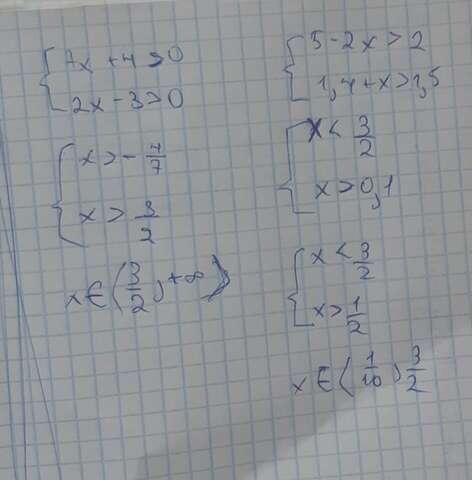 7x + 4 > 0
2x - 3 > 0
x > - 4/7
x > 3/2
x ∈ (3/2, +∞)
5 - 2x > 2
1,4 + x > 1,5
x < 3/2
x > 0,1
x < 3/2
x > 1/2
x ∈ (1/10, 3/2